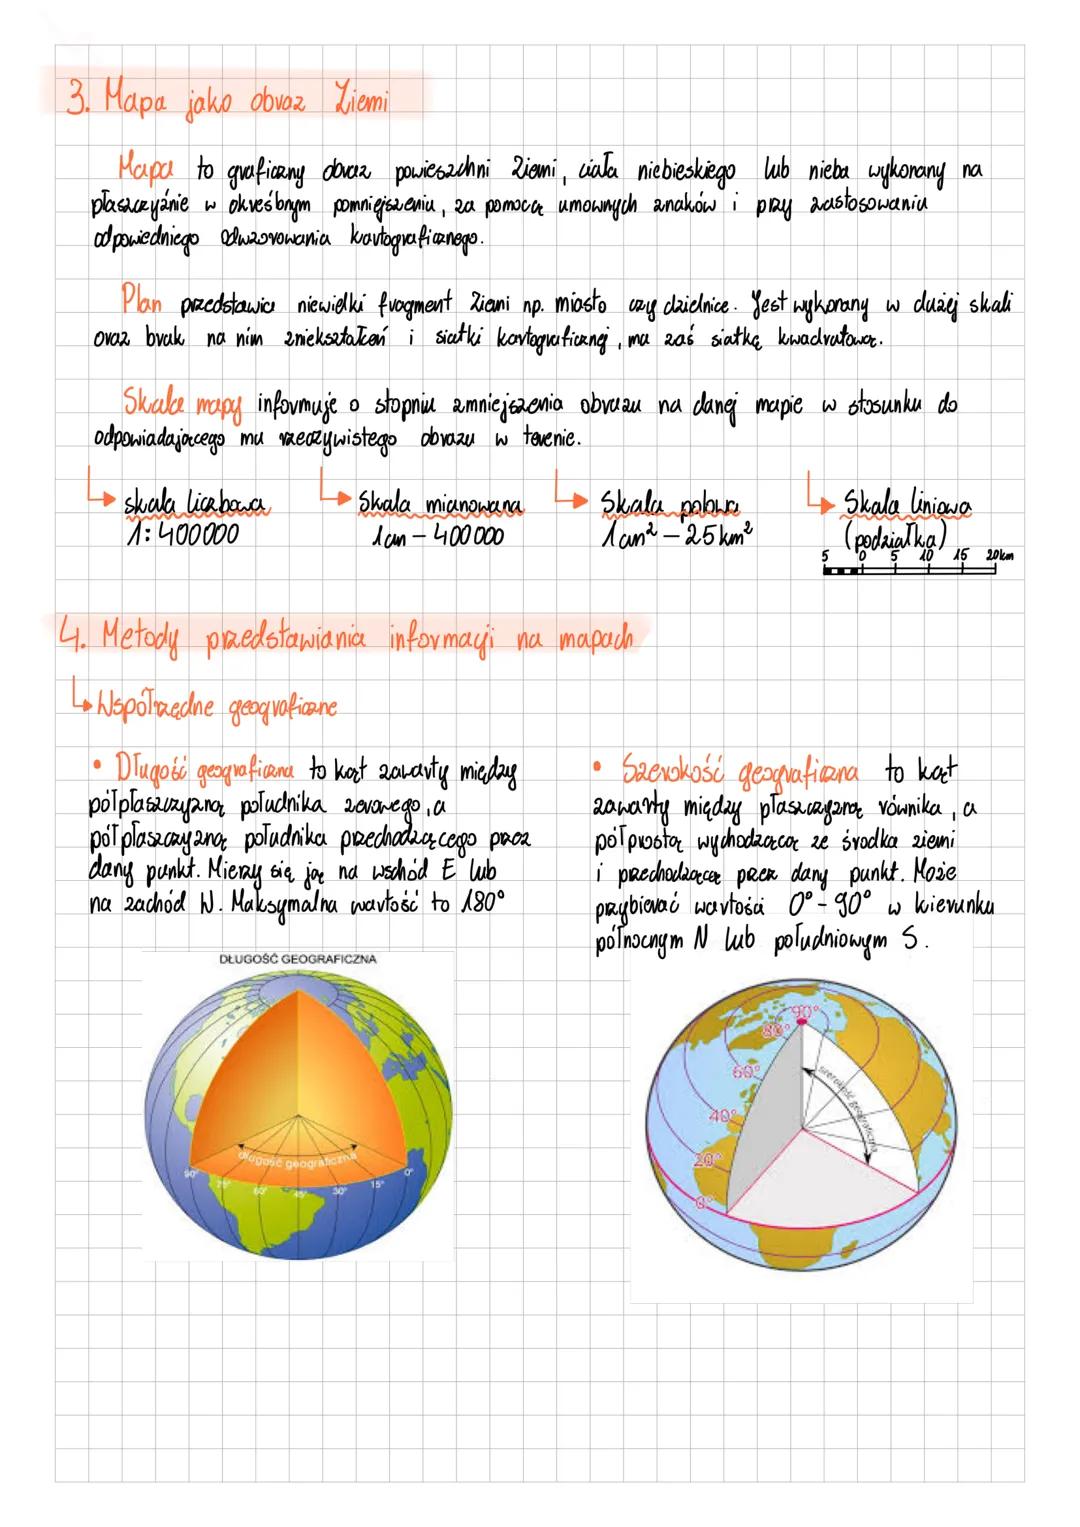 3. Mapa jako obraz Ziemi
Mapa to graficzny obraz powierzchni Ziemi, ciała niebieskiego lub nieba wykonany na
płaszczyźnie w określonym pomniejszeniu, za pomocą umownych znaków i przy zastosowaniu
odpowiedniego odwzorowania kartograficznego.
Plan przedstawia niewielki fragment Ziemi np. miasto czy dzielnice. Jest wykonany w dużej skali
oraz brak na nim zniekształceń i siatki kartograficznej, ma zaś siatkę kwadratową.
Skala mapy informuje o stopniu zmniejszenia obrazu na danej mapie w stosunku do
odpowiadającego mu rzeczywistego obrazu w terenie.
skala liczbowa
1:400000
Skala mianowana
1cm – 400000
Skala polowa
1cm² – 25km²
Skala liniowa
(podziałka)
5 0 5 10 15 20km
4. Metody przedstawiania informacji na mapach
Współrzędne geograficzne
• Długość geograficzna to kąt zawarty między
półpłaszczyzną południka zerowego, a
półpłaszczyzną południka przechodzącego przez
dany punkt. Mierzy się ją na wschód E lub
na zachód W. Maksymalna wartość to 180°
• Szerokość geograficzna to kąt
zawarty między płaszczyzną równika, a
półprostą wychodzącą ze środka ziemi
i przechodzącą przez dany punkt. Może
przybierać wartości 0°-90° w kierunku
północnym N lub południowym S.
DŁUGOŚĆ GEOGRAFICZNA
długość geograficzna
90° 75° 60° 45° 30° 15° 0°
90°
80°
60°
40°
20°
0°
szerokość geograficzna